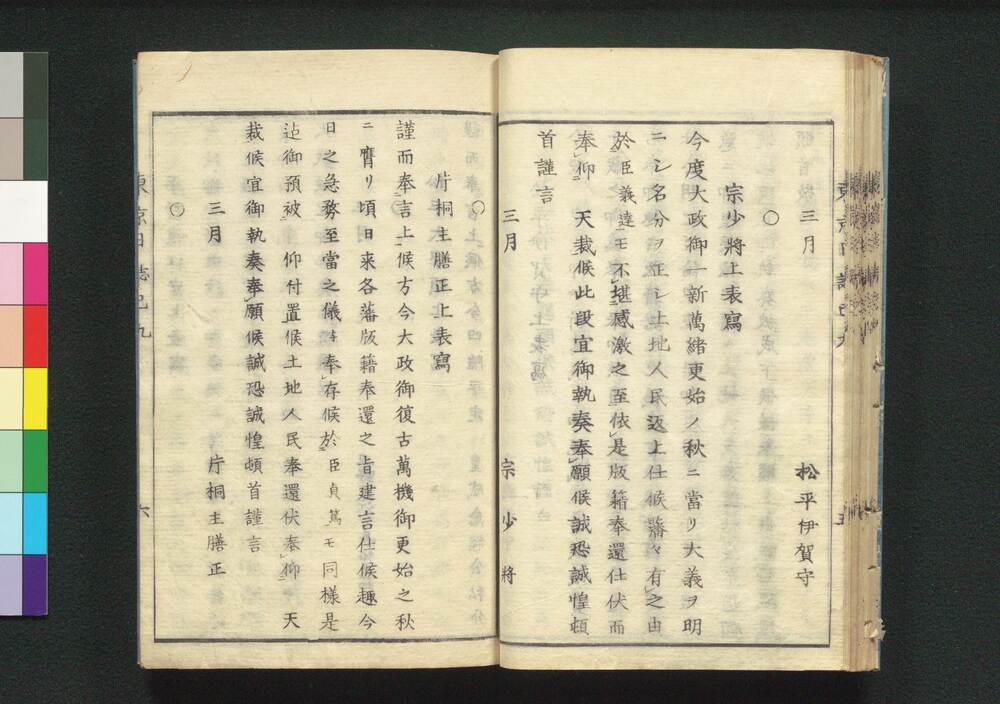 三月　　松平伊賀守
○
宗少將上表寫
今度大政御一新萬緒更始ノ秋ニ當リ大義ヲ明
ニシ名分ヲ正シ土地人民返上仕候藩々有之由
於臣義達モ不堪感激之至依是版籍奉還仕伏而
奉仰　天裁候此段宜御執奏奉願候誠恐誠惶頓
首謹言
三月　　宗少將
○
片桐主膳正上表寫
謹而奉言上候方今大政御復古萬機御更始之秋
ニ膺リ頃日来各藩版籍奉還之旨建言仕候趣今
日之急務至當之儀ﾄ奉存候於臣貞篤モ同樣是
迠御預被仰付置候土地人民奉還伏奉仰　天
裁候宜御執奏奉願候誠恐誠惶頓首謹言
三月　　片桐主膳正
○
東京日誌己九　　六